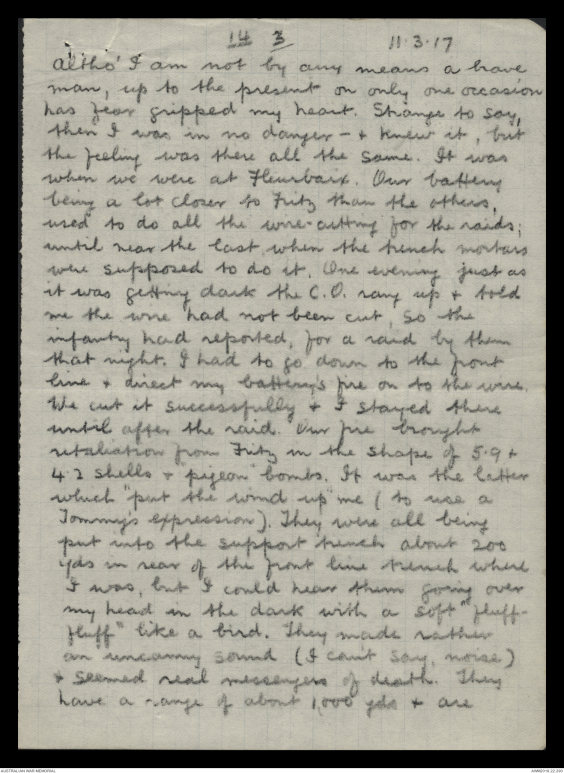 14 3 11.3.17
altho' I am not by any means a brave
man, up to the present on only one occasion
has fear gripped my heart. Strange to say,
then I was in no danger - & knew it, but
the feeling was there all the same. It was
when we were at Fleurbaix. Our battery
being a lot closer to Fritz than the others,
used to do all the wire-cutting for the raids;
until near the last when the trench mortars
were supposed to do it. One evening just as
it was getting dark the C.O. rang up & told
me the wire had not been cut, so the
infantry had reported, for a raid by them
that night. I had to go down to the front
line & direct my battery's fire on to the wire.
We cut it successfully & I stayed there
until after the raid. Our fire brought
retaliation from Fritz in the shape of 5.9 &
4.2 shells & "pigeon" bombs. It was the latter
which "put the wind up" me (to use a
Tommy's expression). They were all being
put into the support trench about 200
yds in rear of the front line trench where
I was, but I could hear them going over
my head in the dark with a soft "fluff-
fluff" like a bird. They made rather
an uncanny sound (I can't say, noise)
& seemed real messengers of death. They
have a range of about 1,000 yds & are
AUSTRALIAN WAR MEMORIAL